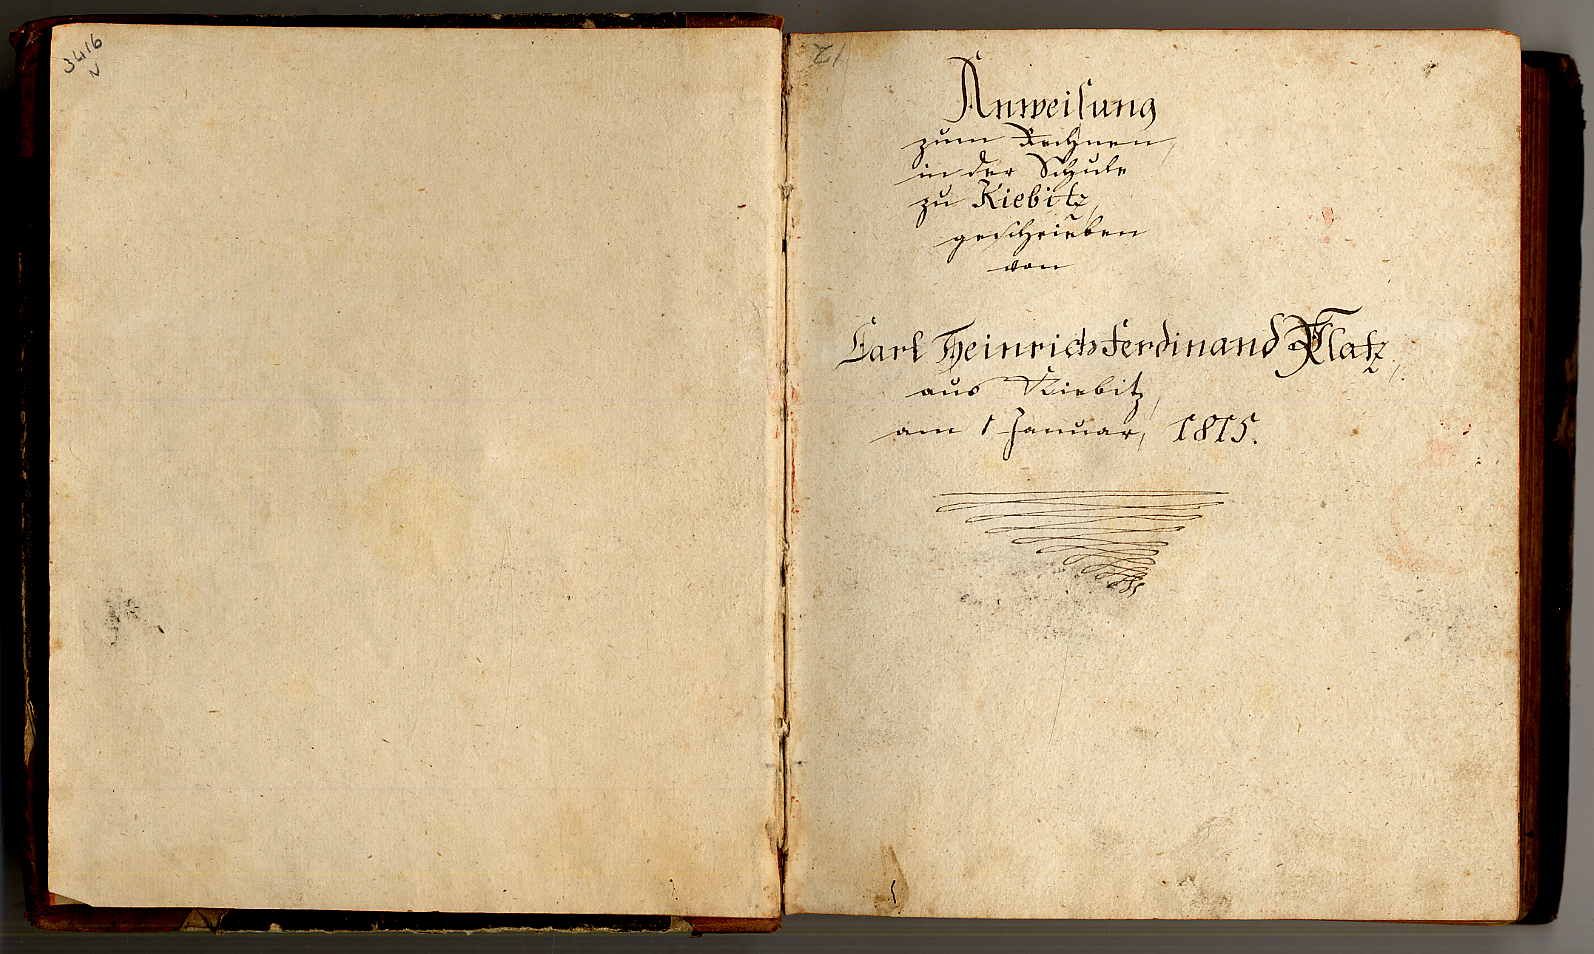 3416
Anweisung
zum Rechnen,
in der Schule
zu Kiebitz,
geschrieben
von
Carl Heinrich Ferdinand Platz,
aus Kiebitz,
am 1 Januar, 1815.